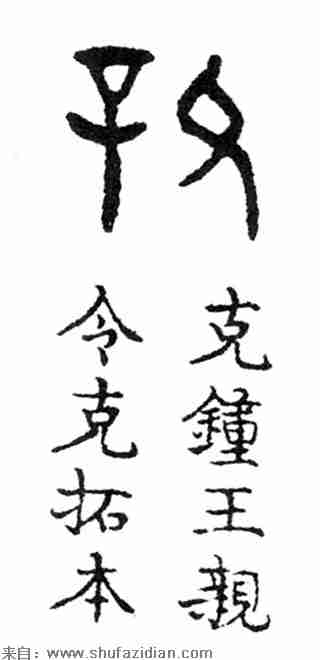 克鐘王親
令克拓本
来自：www.shufazidian.com